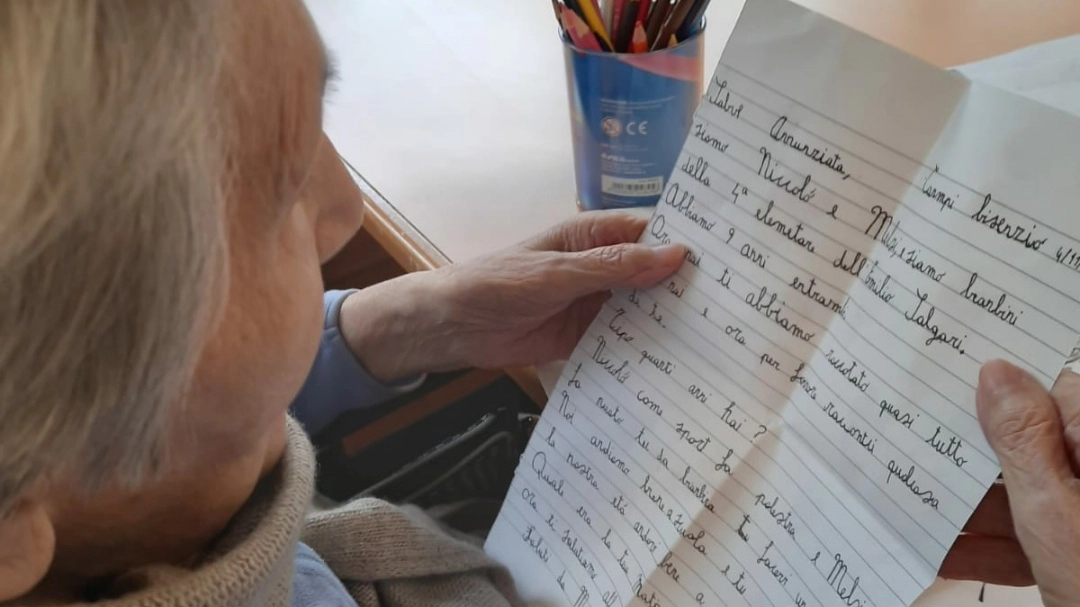 Campi bisenzio 4/11
Salve Annunziata,
siamo Niccolò e siamo bambini
della 4ª elementare dell'Emilio Salgari.
Abbiamo 9 anni entrambi
Ora noi ti abbiamo raccotato quasi tutto
di noi e ora per favore racconti qualcosa
di te.
Tipo quanti anni hai?
Niccolò come sport fa palestra e Melsi
fa nuoto tu da bambina tu facevi un
Noi andiamo bene a scuola e tu
la nostra età andavi bene a
Quale era la tua mate
ora ti salutiamo
Saluti da
CE